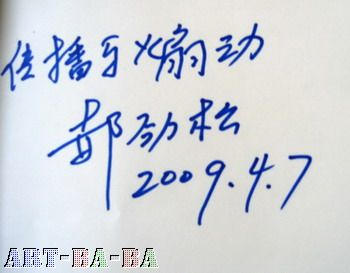 传播与煽动
郝劲松
2009.4.7
ART-BA-BA